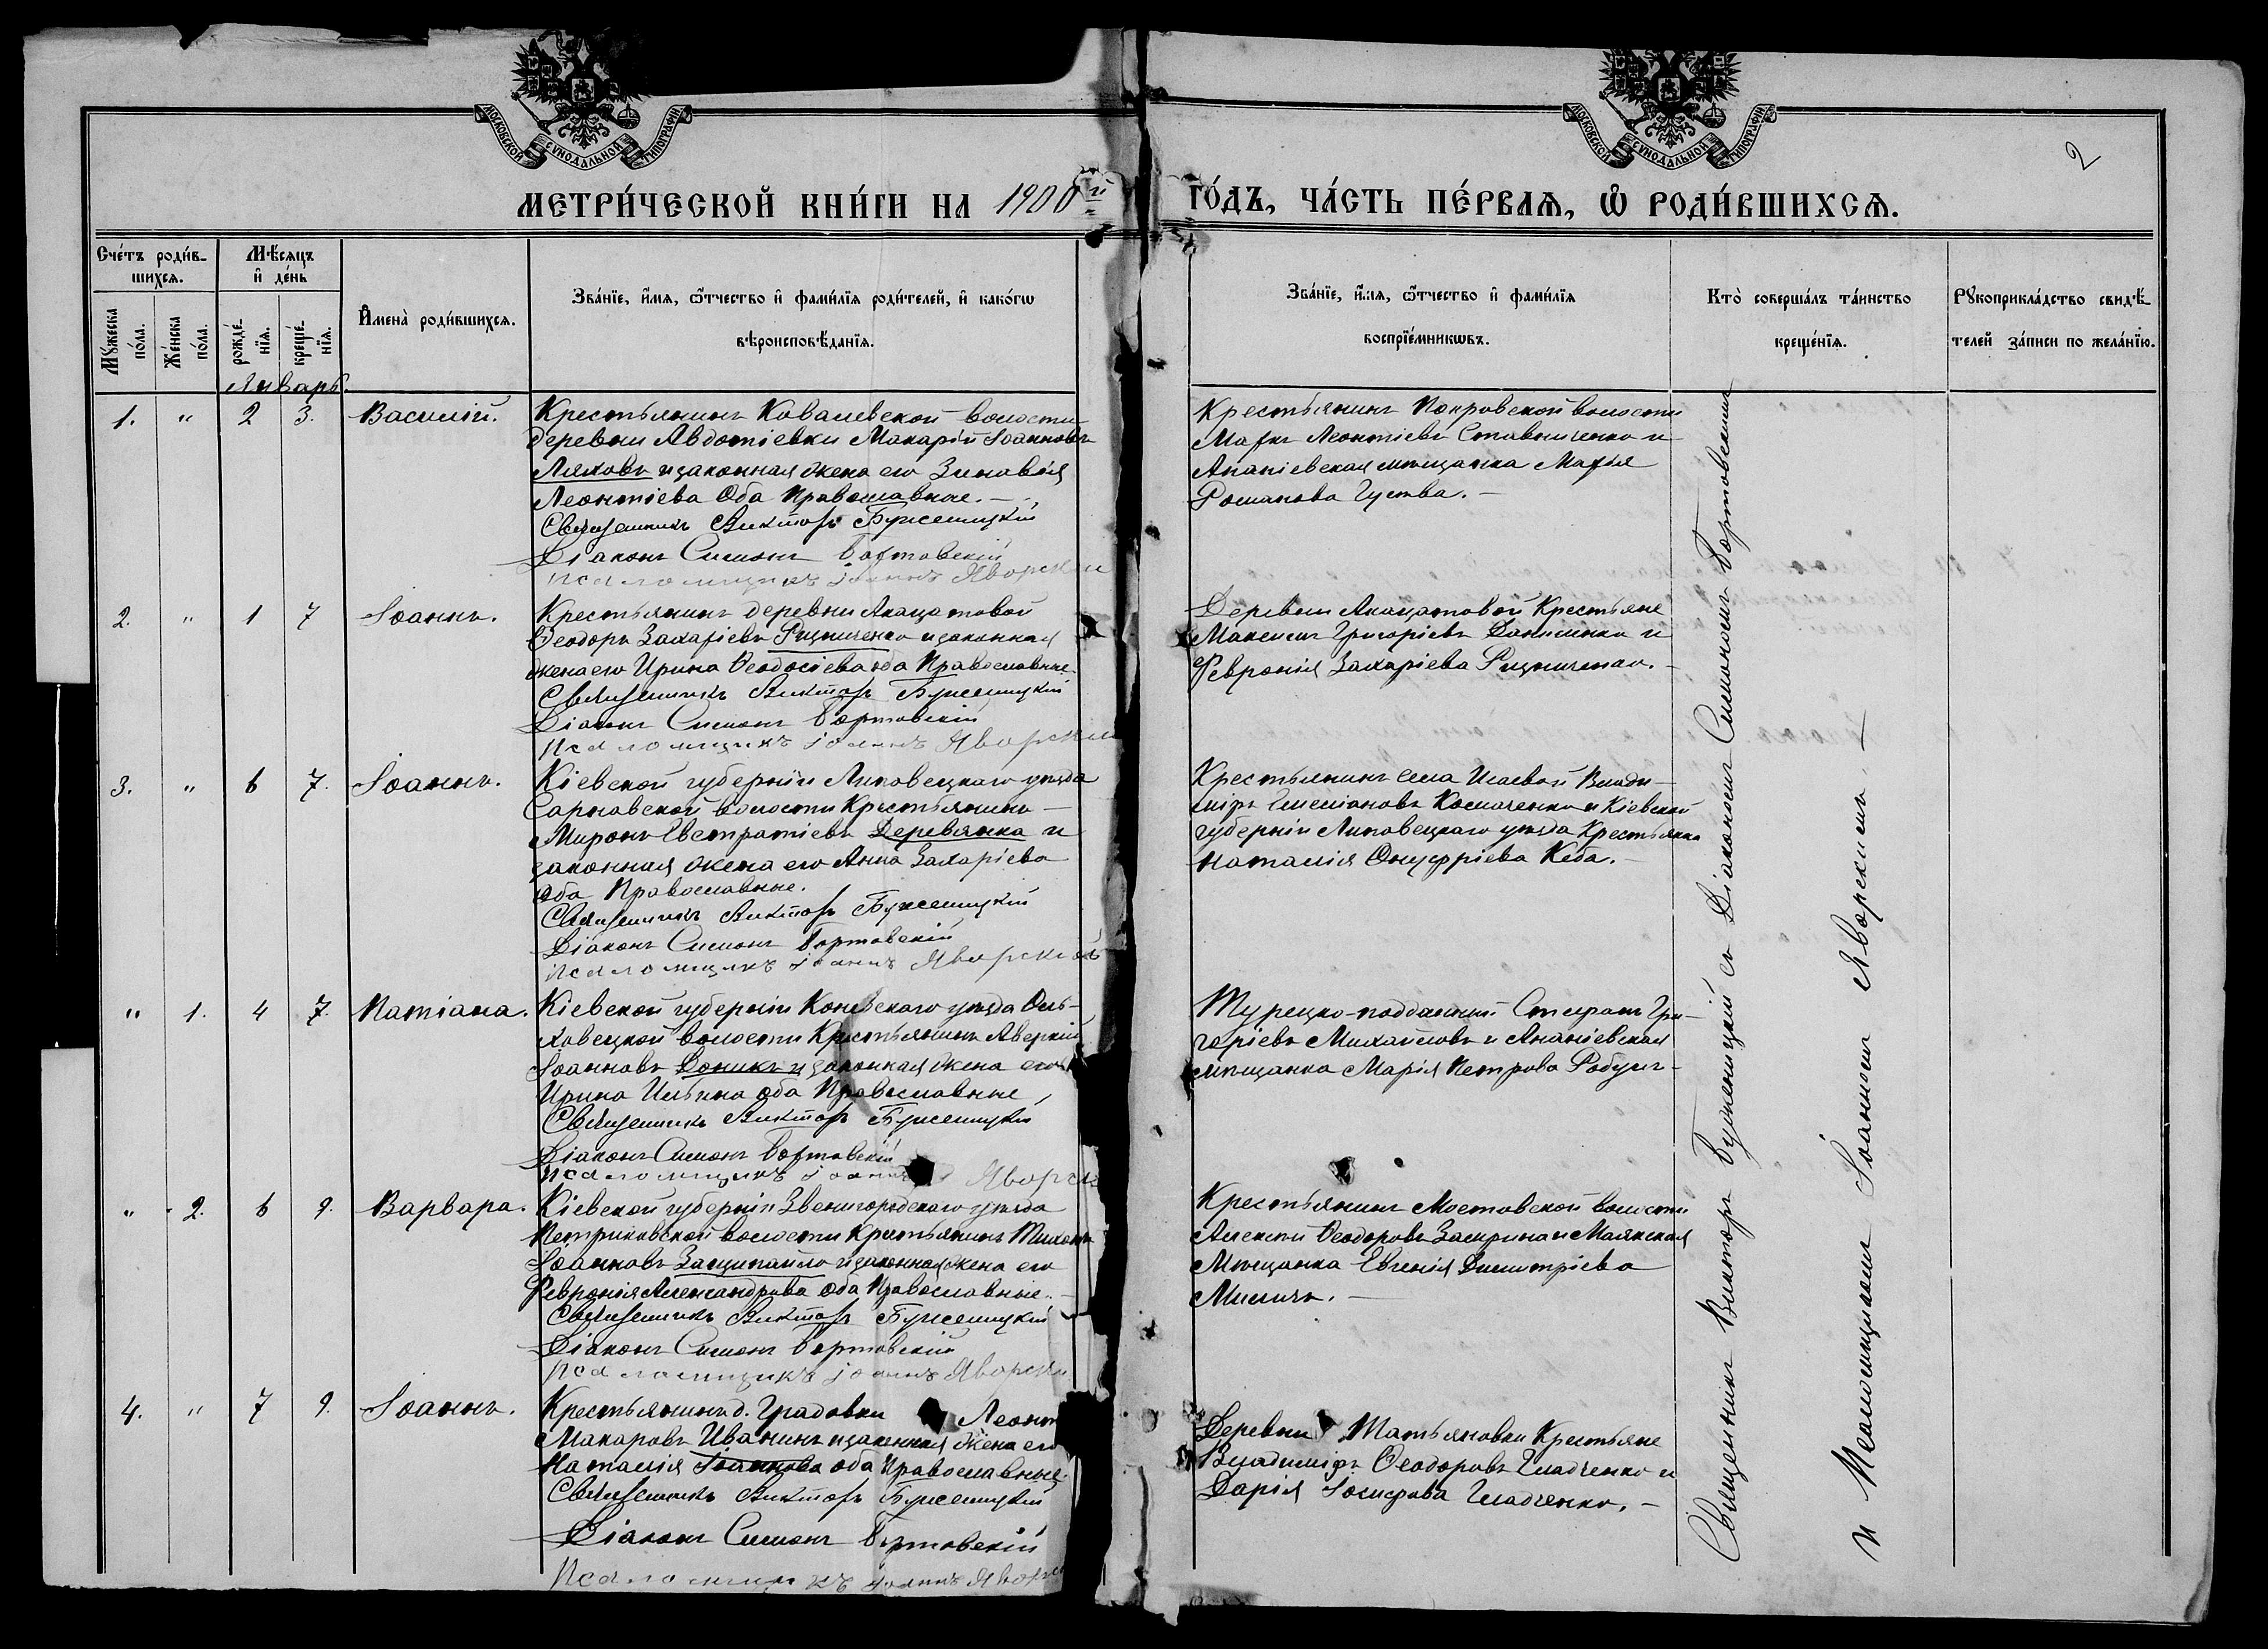 МОСКОВСКОЙ СѴНОДАЛЬНОЙ ТИПОГРАФІИ
МОСКОВСКОЙ СѴНОДАЛЬНОЙ ТИПОГРАФІИ
2
МЕТРИ́ЧЕСКОЙ КНИ́ГИ НА 1900й
ГО́ДЪ, ЧА́СТЬ ПЕ́РВАѦ, Ѽ РОДИ́ВШИХСѦ.
Сче́тъ роди́в-
шихсѧ.
Мѣ́сѧцъ
и҆ де́нь
Мꙋ́жеска
по́ла.
Же́нска
по́ла.
рожде́-
нїѧ.
креще́-
нїѧ.
И҆мена̀ роди́вшихсѧ.
Зва́нїе, и҆́мѧ, ѻ҆́тчество и҆ фамі́лїѧ роди́телей, и҆ како́гѡ
вѣроисповѣ́данїѧ.
Зва́нїе, и҆́мѧ, ѻ҆́тчество и҆ фамі́лїѧ
воспрїе́мникѡвъ.
Кто̀ соверша́лъ та́инство
креще́нїѧ.
Рꙋкоприкла́дство свидѣ́-
телей за́писи по жела́нїю.
Январь.
1. " 2 3. Василій.
Крестьянинъ Ковалевской волости
деревни Авдотіевки Макарій Іоанновъ
Ляховъ и законная жена его Зиновія
Леонтіева Оба Православные.—
Священникъ Викторъ Буженицкій
Діаконъ Симонъ Бортовскій
Псаломщикъ Іоаннъ Яворскій
Крестьянинъ Покровской волости
Маркъ Леонтіевъ Ставниченко и
Ананіевская мѣщанка Марія
Романова Густва.—
2. " 1 7 Іоаннъ.
Крестьянинъ деревни Акацатовой
Ѳеодоръ Захаріевъ Рицниченко и законная
жена его Ирина Ѳеодосіева оба Православные
Священникъ Викторъ Буженицкій
Діаконъ Симонъ Бортовскій
Псаломщикъ Іоаннъ Яворскій
Деревни Акацатовой Крестьяне
Максимъ Григоріевъ Даниленко и
Февронія Захаріева Рицниченко.—
3. " 6 7. Іоаннъ.
Кіевской губерніи Липовецкаго уѣзда
Сарновской волости Крестьянинъ—
Миронъ Евстратіевъ Деревянка и
законная жена его Анна Захаріева
Оба Православные.
Священникъ Викторъ Буженицкій
Діаконъ Симонъ Бортовскій
Псаломщикъ Іоаннъ Яворскій
Крестьянинъ села Исаевой Влади-
міръ Емеліановъ Космаченко и Кіевской
губерніи Липовецкаго уѣзда Крестьянка
Наталія Онуфріева Кеба.—
" 1. 4 7. Татіана.
Кіевской губерніи Каневскаго уѣзда Оль-
ховецкой волости Крестьянинъ Аверкій
Іоанновъ Доникъ и законная жена его
Ирина Ильина оба Православные
Священникъ Викторъ Буженицкій
Діаконъ Симонъ Бортовскій
Псаломщикъ Іоаннъ Яворск
Турецко-подданный Спиронъ Гри-
горіевъ Михайловъ и Ананіевская
мѣщанка Марія Петрова Робулъ—
" 2. 6 9. Варвара.
Кіевской губерніи Звенигородскаго уѣзда
Петриковской волости Крестьянинъ Тихонъ
Іоанновъ Защипайло и законная жена его
Февронія Александрова оба Православные.—
Священникъ Викторъ Буженицкій
Діаконъ Симонъ Бортовскій
Псаломщикъ Іоаннъ Яворскій
Крестьянинъ Мостовской волости
Алексѣй Ѳеодоровъ Замрина и Маякская
Мѣщанка Евгенія Димитріева
Милить.—
4. " 7 9. Іоаннъ.
Крестьянинъ д. Градовки Леонт
Макаровъ Иванинъ и законная жена его
Наталія Іоаннова оба Православные.
Священникъ Викторъ Буженицкій
Діаконъ Симонъ Бортовскій
Псаломщикъ Іоаннъ Яворск
Деревни Татьяновки Крестьяне
Владиміръ Ѳеодоровъ Гладченко и
Дарія Іосифова Гладченко.—
Священникъ Викторъ Буженицкій съ Діакономъ Симономъ Бортовскимъ
и Псаломщикомъ Іоанномъ Яворскимъ.—